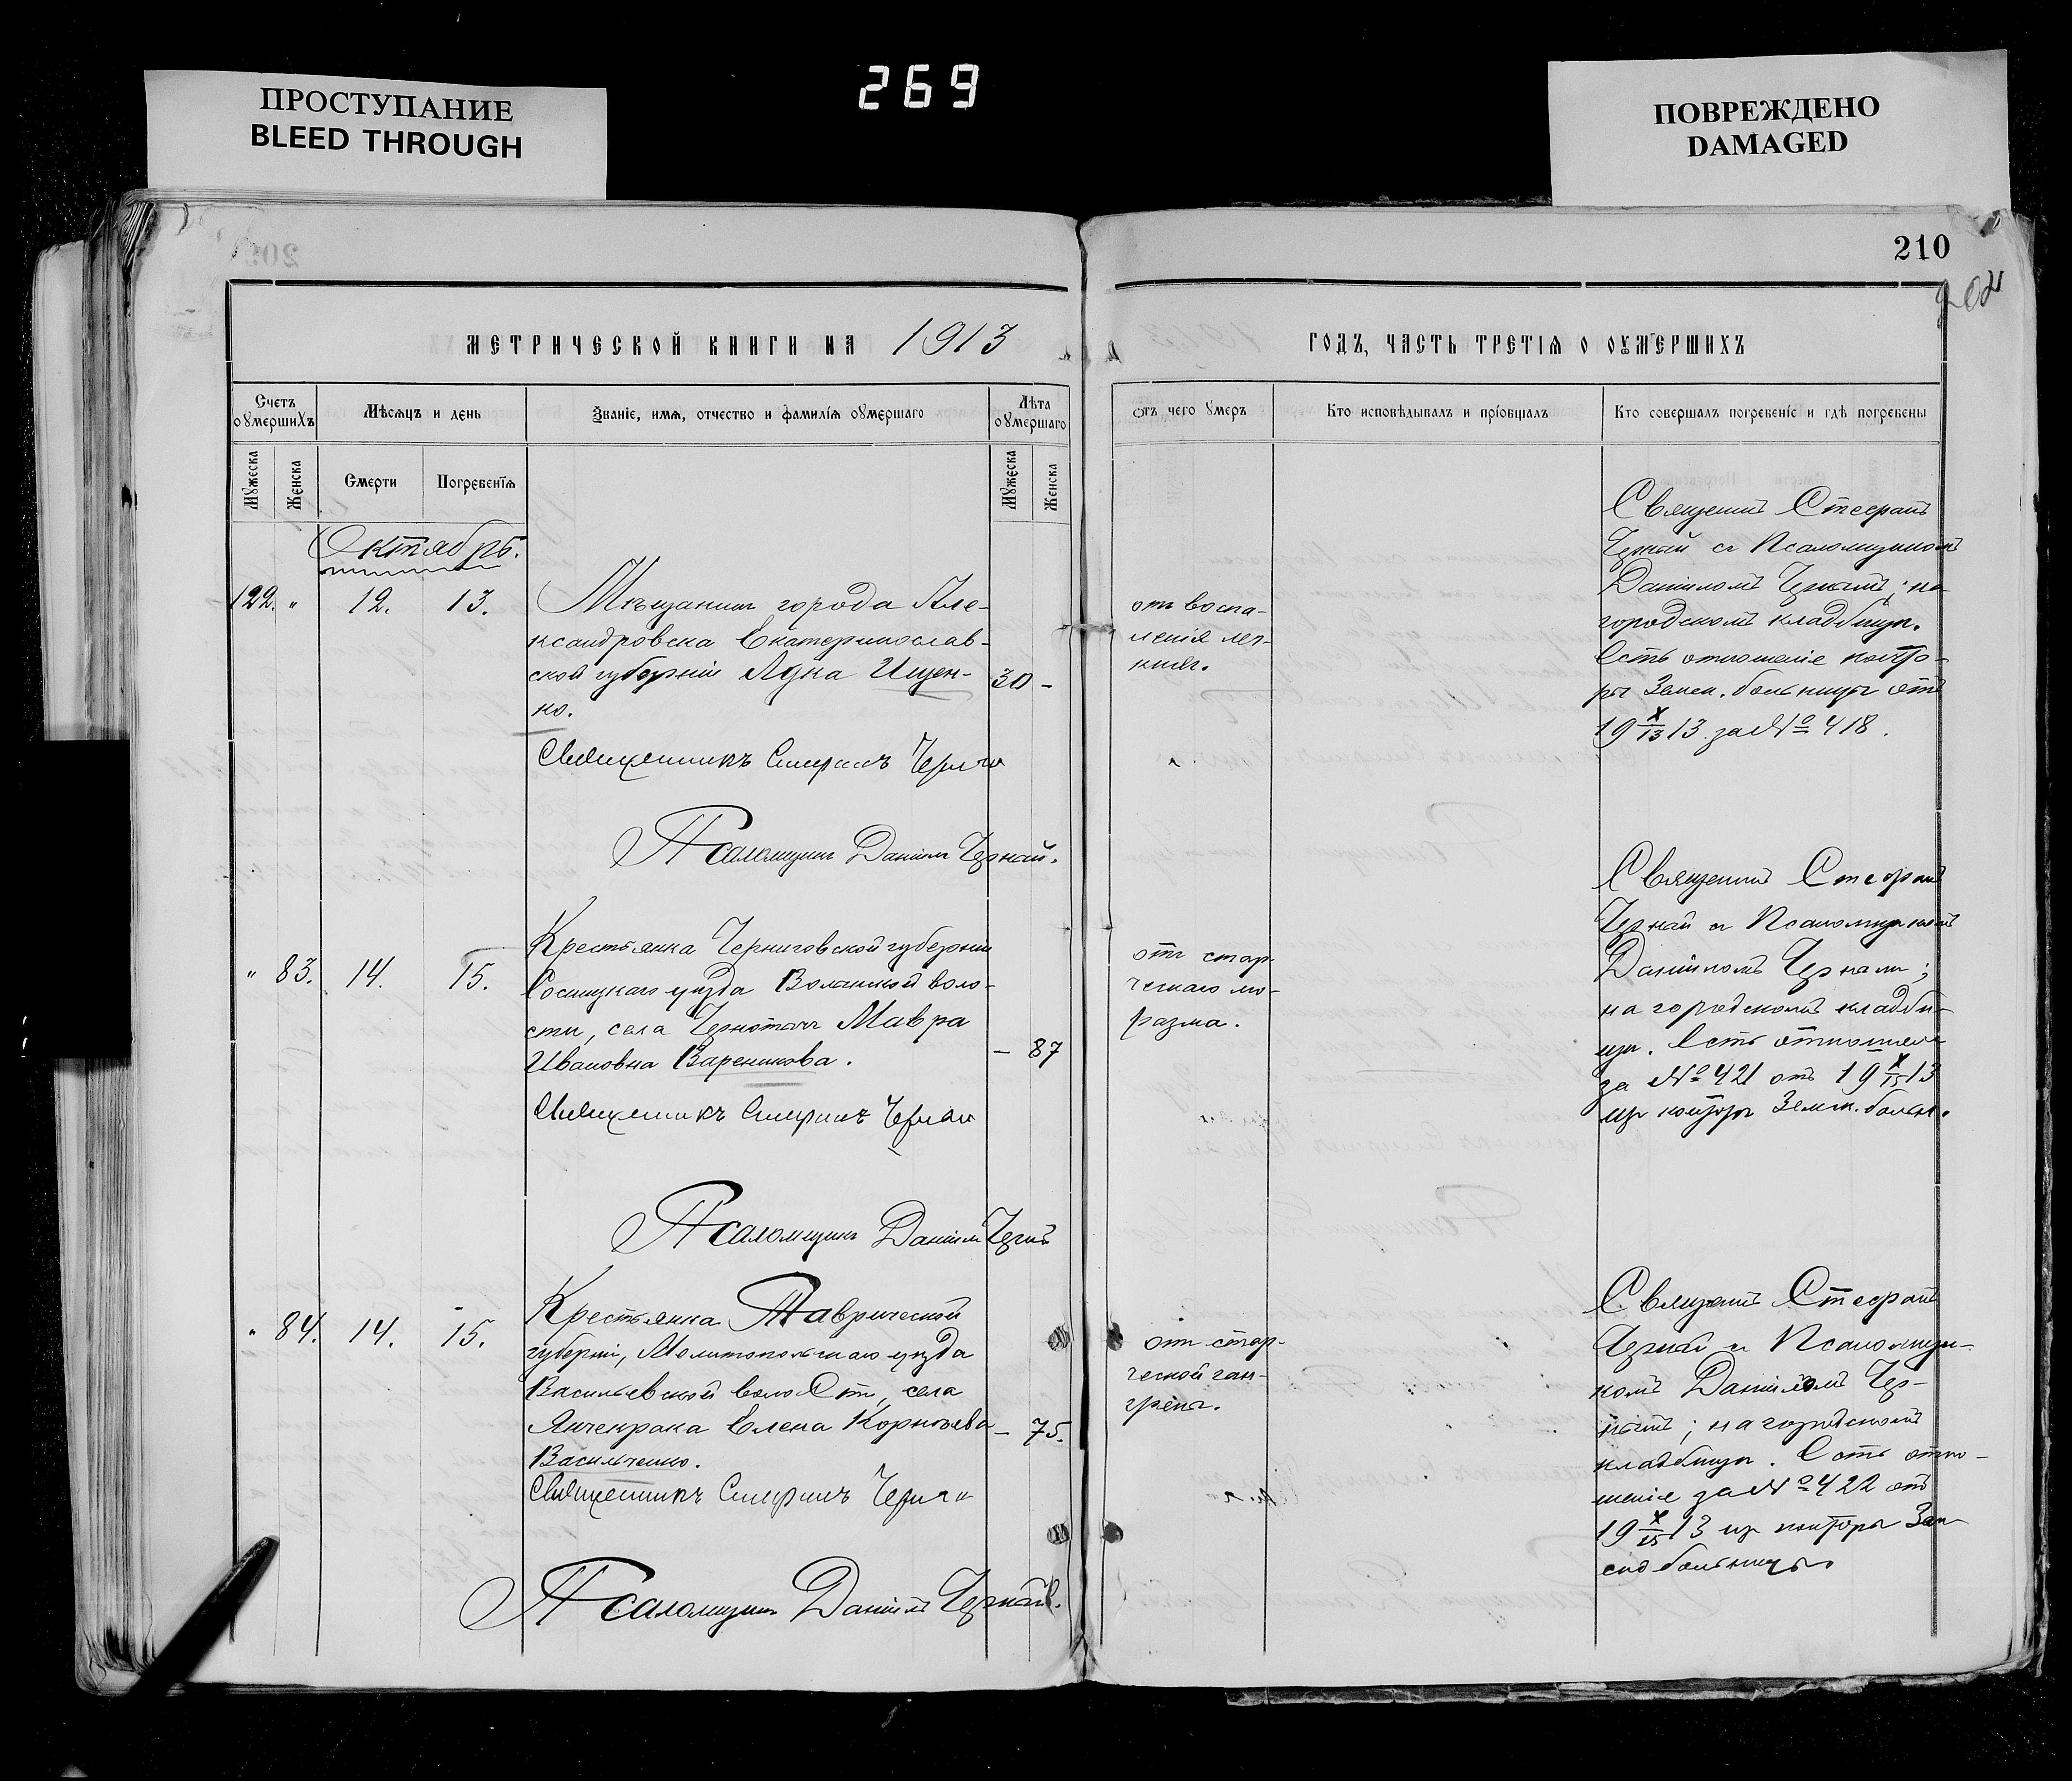 269
ПРОСТУПАНИЕ
BLEED THROUGH
ПОВРЕЖДЕНО
DAMAGED
210
204
МЕТРИЧЕСКОЙ КНИГИ НА 1913
ГОДЪ, ЧАСТЬ ТРЕТІѦ О ОУМЕРШИХЪ
Счетъ оумершихъ
Мѣсѧцъ и день
Званіе, имѧ, отчество и фамиліѧ оумершаго
Лѣта оумершаго
Мужеска
Женска
Смерти
Погребеніѧ
Мужеска
Женска
отъ чего умеръ
Кто исповѣдывалъ и пріобщалъ
Кто совершалъ погребеніе и гдѣ погребены
Октябрь.
122. " 12. 13.
Мѣщанинъ города Але-
ксандровска Екатеринослав-
ской губерніи Ищен-
ко.
30 -
Священникъ Стефанъ Черный
Псаломщикъ Даніилъ Черный.
отъ воспа-
ленія лег-
кихъ.
Священникъ Стефанъ
Черный съ Псаломщикомъ
Даніиломъ Чернымъ; на
городскомъ кладбищѣ.
Есть отношеніе конто-
ры Земск. больницы отъ
19 X/13 13 за № 418.
" 83. 14. 15.
Крестьянка Черниговской губерніи
Сосницкаго уѣзда Волынской воло-
сти, села Мавра
Ивановна Вареникова.
- 87
Священникъ Стефанъ Черный
Псаломщикъ Даніилъ Черный
отъ стар-
ческаго ма-
разма.
Священникъ Стефанъ
Черный съ Псаломщикомъ
Даніиломъ Чернымъ;
на городскомъ кладби-
щѣ. Есть отношеніе
за № 421 отъ 19 X/15 13
изъ конторы Земск. больн.
" 84. 14. 15.
Крестьянка Таврической
губерніи, Мелитопольскаго уѣзда
Васильевской волости, села
Янчекрака Елена Корнѣева
Васильченко.
- 75.
Священникъ Стефанъ Черный
Псаломщикъ Даніилъ Черный.
отъ стар-
ческой ган-
грены.
Священникъ Стефанъ
Черный съ Псаломщи-
комъ Даніиломъ Чер-
нымъ; на городскомъ
кладбищѣ. Есть отно-
шеніе за № 422 отъ
19 X/15 13 изъ конторы Зем-
ской больницы.